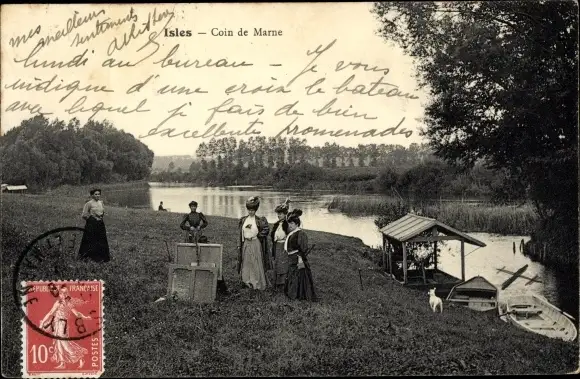 mes meilleurs
sentiments
Isles – Coin de Marne
lundi au bureau – Je vous
indique d'une croix le bateau
avec lequel je fais de bien
excellente promenades
REPUBLIQUE FRANÇAISE
10c
POSTES